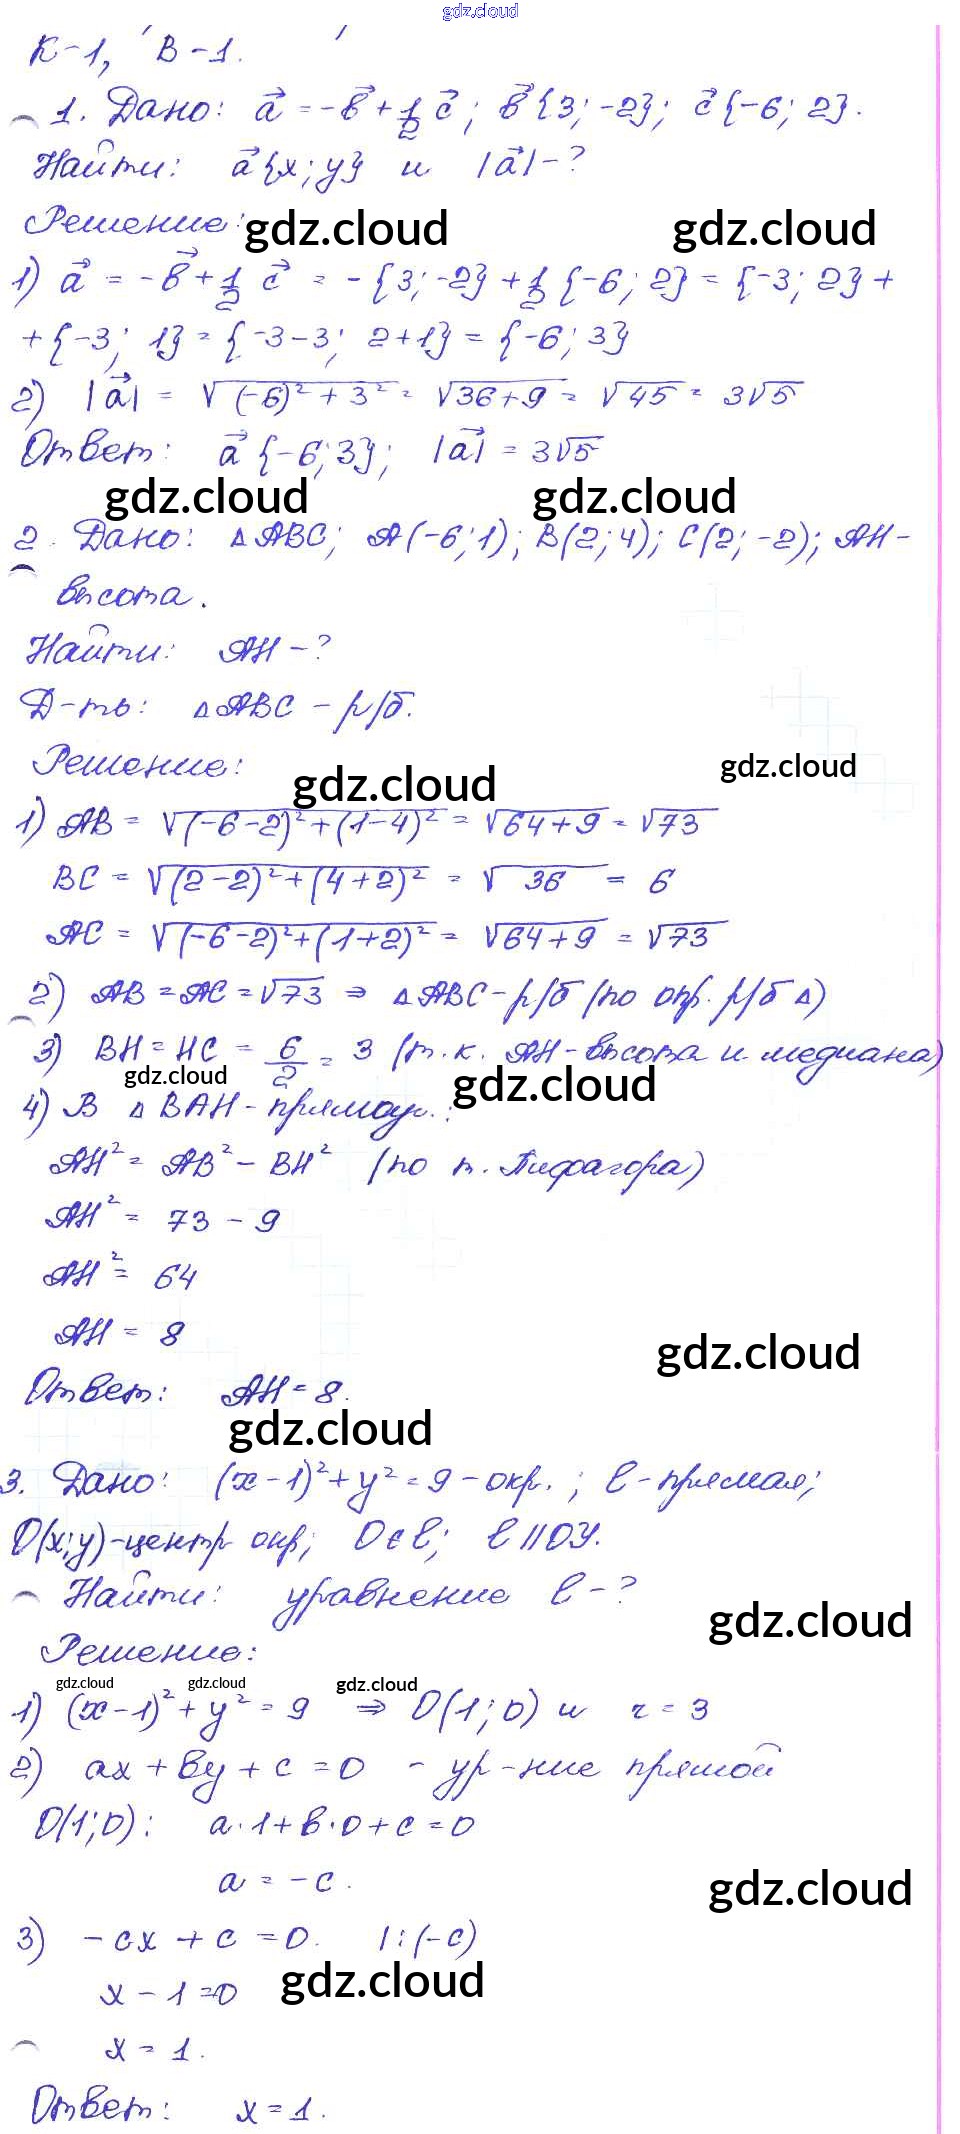 gdz.cloud
К-1, В-1.
1. Дано: a⃗ = -b⃗ + 1/2 c⃗; b⃗{3; -2}; c⃗{-6; 2}.
Найти: a⃗{x; y} и |a⃗| - ?
Решение:
gdz.cloud gdz.cloud
1) a⃗ = -b⃗ + 1/2 c⃗ = -{3; -2} + 1/2 {-6; 2} = {-3; 2} +
+ {-3; 1} = {-3-3; 2+1} = {-6; 3}
2) |a⃗| = √((-6)² + 3²) = √(36+9) = √45 = 3√5
Ответ: a⃗ {-6; 3}; |a⃗| = 3√5
gdz.cloud gdz.cloud
2. Дано: △ABC; A(-6; 1); B(2; 4); C(2; -2); AH-
высота.
Найти: AH - ?
Д-ть: △ABC - р/б.
Решение:
gdz.cloud gdz.cloud
1) AB = √((-6-2)²+(1-4)²) = √(64+9) = √73
BC = √((2-2)²+(4+2)²) = √36 = 6
AC = √((-6-2)²+(1+2)²) = √(64+9) = √73
2) AB = AC = √73 ⇒ △ABC - р/б (по опр. р/б △)
3) BH = HC = 6/2 = 3 (т.к. AH - высота и медиана)
gdz.cloud gdz.cloud
4) В △BAH - прямоуг.:
AH² = AB² - BH² (по т. Пифагора)
AH² = 73 - 9
AH² = 64
AH = 8
gdz.cloud
Ответ: AH = 8.
gdz.cloud
3. Дано: (x-1)² + y² = 9 - окр.; ℓ - прямая;
O(x; y) - центр окр; O ∈ ℓ; ℓ || OY.
Найти: уравнение ℓ - ?
gdz.cloud
Решение:
gdz.cloud gdz.cloud gdz.cloud
1) (x-1)² + y² = 9 ⇒ O(1; 0) и r = 3
2) ax + by + c = 0 - ур-ние прямой
O(1; 0): a·1 + b·0 + c = 0
a = -c.
gdz.cloud
3) -cx + c = 0. |:(-c)
gdz.cloud
x - 1 = 0
x = 1.
Ответ: x = 1.